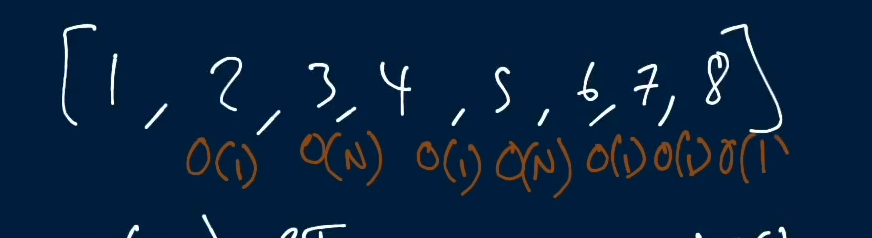 [1, 2, 3, 4, 5, 6, 7, 8]
O(1) O(N) O(1) O(N) O(1) O(1) O(1